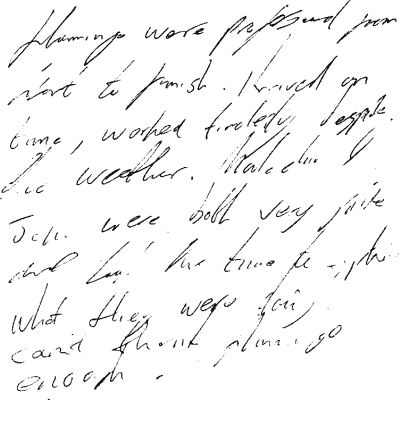 flamingo were professional from
start to finish. Arrived on
time, worked tirelessly despite
the weather. Malcolm &
John were both very polite
and had the time to explain
what they were doing
can't thank flamingo
enough.